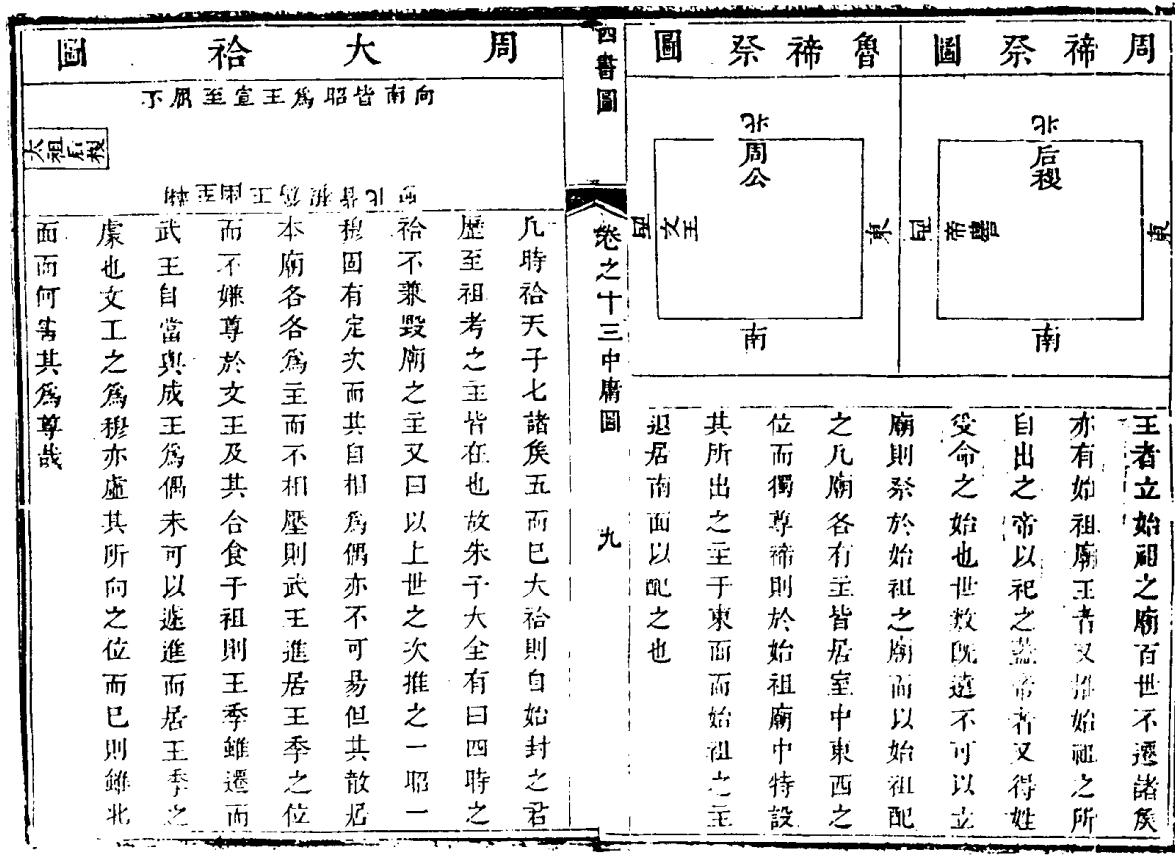 周禘祭圖
北
后稷
東
帝嚳
西
南
魯禘祭圖
北
周公
東
文王
西
南
王者立始祖之廟百世不遷諸矦
亦有始祖廟王者又推始祖之所
自出之帝以祀之蓋帝者又得姓
受命之始也世数既遠不可以立
廟則祭於始祖之廟而以始祖配
之凡廟各有主皆居室中東西之
位而獨尊禘則於始祖廟中特設
其所出之主于東面而始祖之主
退居南面以配之也
四書圖
卷之十三中庸圖
九
周大祫圖
向南皆昭為王宣至不
太祖后稷
向北皆穆為王至
凡時祫天子七諸矦五而已大祫則自始封之君
歷至祖考之主皆在也故朱子大全有曰四時之
祫不兼毀廟之主又曰以上世之次推之一昭一
穆固有定次而其自相為偶亦不可易但其散居
本廟各各為主而不相壓則武王進居王季之位
而不嫌尊於文王及其合食于祖則王季雖遷而
武王自當與成王為偶未可以遽進而居王季之
處也文王之為穆亦虛其所向之位而已則雖北
面而何害其為尊哉